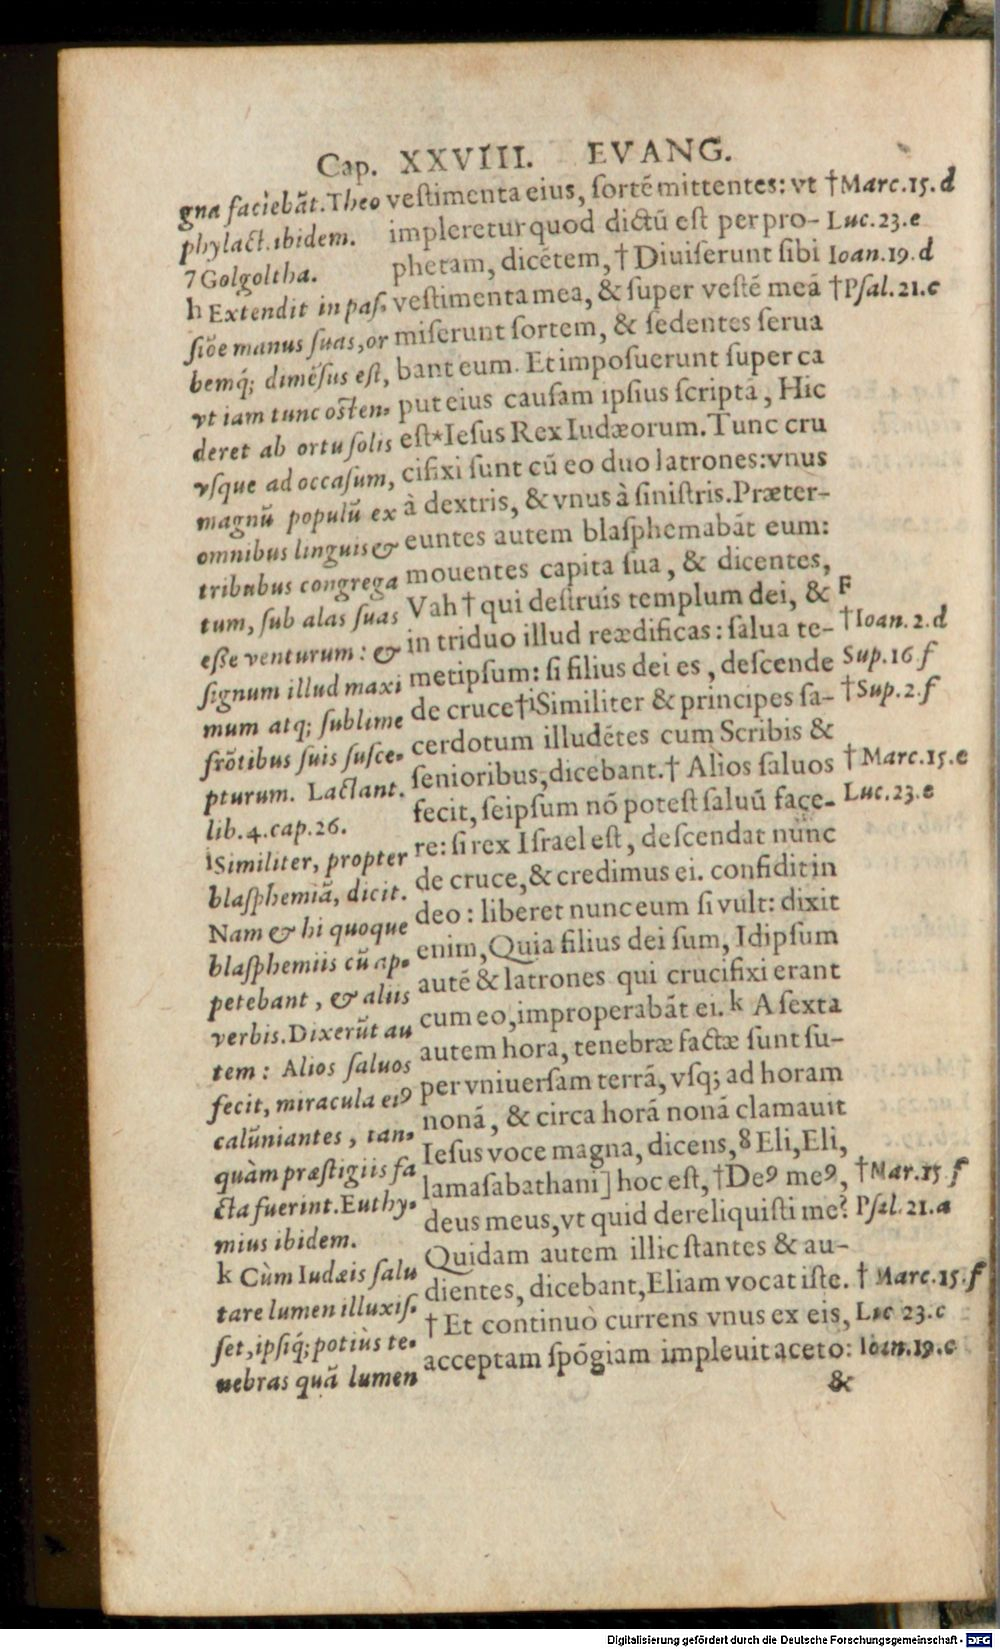 Cap. XXVIII. EVANG.
gna faciebãt. Theo
phylact. ibidem.
7 Golgoltha.
h Extendit in pas-
siõe manus suas, or
bemq́; dimẽsus est,
vt iam tunc osten-
deret ab ortu solis
vsque ad occasum,
magnũ populũ ex
omnibus linguis &
tribubus congrega
tum, sub alas suas
esse venturum: &
signum illud maxi
mum atq; sublime
frõtibus suis susce-
pturum. Lactant.
lib. 4. cap. 26.
i Similiter, propter
blasphemiã, dicit.
Nam & hi quoque
blasphemiis cũ ap-
petebant, & aliis
verbis. Dixerũt au
tem: Alios saluos
fecit, miracula eiꝰ
calũniantes, tan-
quàm præstigiis fa
cta fuerint. Euthy-
mius ibidem.
k Cùm Iudæis salu
tare lumen illuxis-
set, ipsiq́; potiùs te-
nebras quã lumen
vestimenta eius, sortẽ mittentes: vt
impleretur quod dictũ est per pro-
phetam, dicẽtem, † Diuiserunt sibi
vestimenta mea, & super vestẽ meã
miserunt sortem, & sedentes serua
bant eum. Et imposuerunt super ca
put eius causam ipsius scriptã, Hic
est * Iesus Rex Iudæorum. Tunc cru
cifixi sunt cũ eo duo latrones: vnus
à dextris, & vnus à sinistris. Præter-
euntes autem blasphemabãt eum:
mouentes capita sua, & dicentes,
Vah † qui destruis templum dei, &
in triduo illud reædificas: salua te-
metipsum: si filius dei es, descende
de cruce † i Similiter & principes sa-
cerdotum illudẽtes cum Scribis &
senioribus, dicebant. † Alios saluos
fecit, seipsum nõ potest saluũ face-
re: si rex Israel est, descendat nunc
de cruce, & credimus ei. confidit in
deo: liberet nunc eum si vult: dixit
enim, Quia filius dei sum, Idipsum
autẽ & latrones qui crucifixi erant
cum eo, improperabãt ei. k A sexta
autem hora, tenebræ factæ sunt su-
per vniuersam terrã, vsq; ad horam
nonã, & circa horã nonã clamauit
Iesus voce magna, dicens, 8 Eli, Eli,
lamasabathani] hoc est, † Deꝰ meꝰ,
deus meus, vt quid dereliquisti me?
Quidam autem illic stantes & au-
dientes, dicebant, Eliam vocat iste.
† Et continuò currens vnus ex eis,
acceptam spõgiam impleuit aceto:
&
† Marc. 15. d
Luc. 23. e
Ioan. 19. d
† Psal. 21. c
F
† Ioan. 2. d
Sup. 16 f
† Sup. 2. f
† Marc. 15. e
Luc. 23. e
† Mar. 15. f
Psal. 21. a
† Marc. 15. f
Luc 23. c
Ioan. 19. c
Digitalisierung gefördert durch die Deutsche Forschungsgemeinschaft - DFG